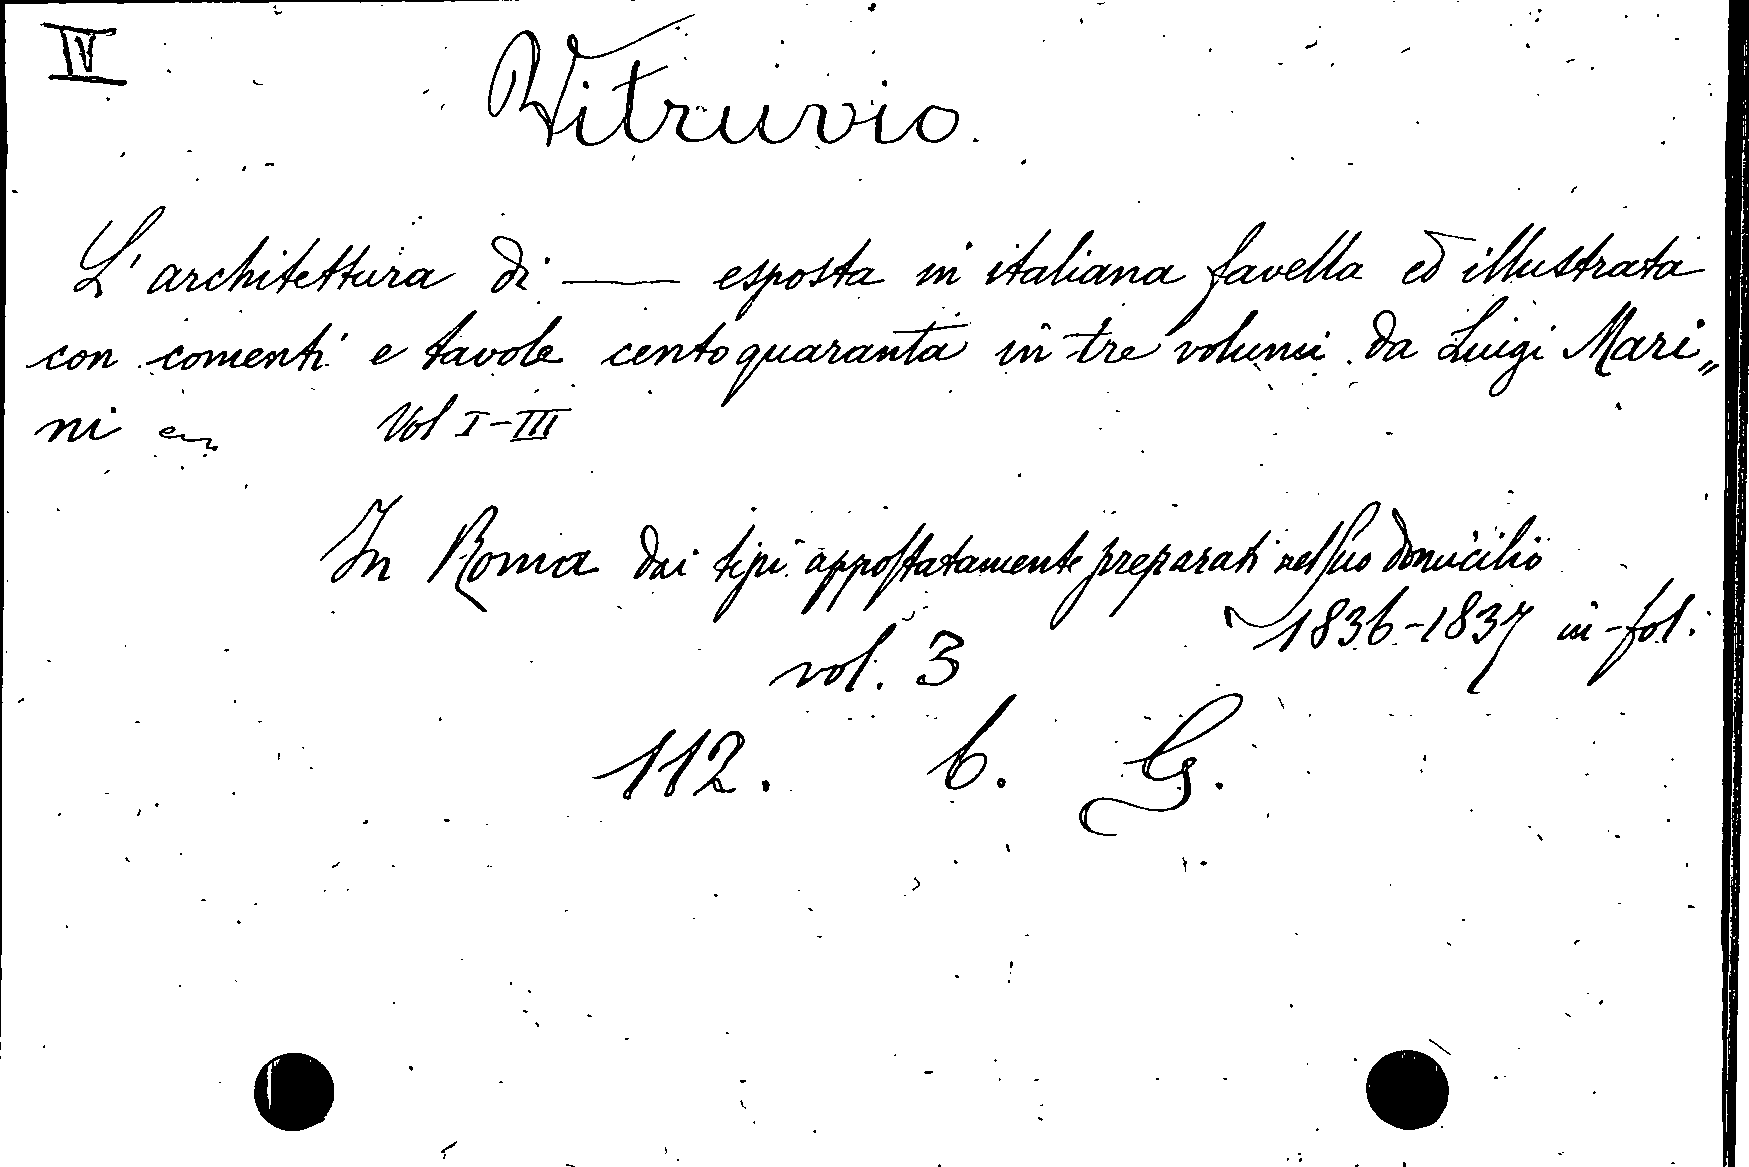 IV
Vitruvio.
L'architettura di —— esposta in italiana favella ed illustrata
con comenti e tavole cento quaranta in tre volumi da Luigi Mari„
ni Vol I-III
In Roma dai tipi appostatamente preparati nel suo domicilio
1836-1837 in-fol.
vol. 3
112. b. G.